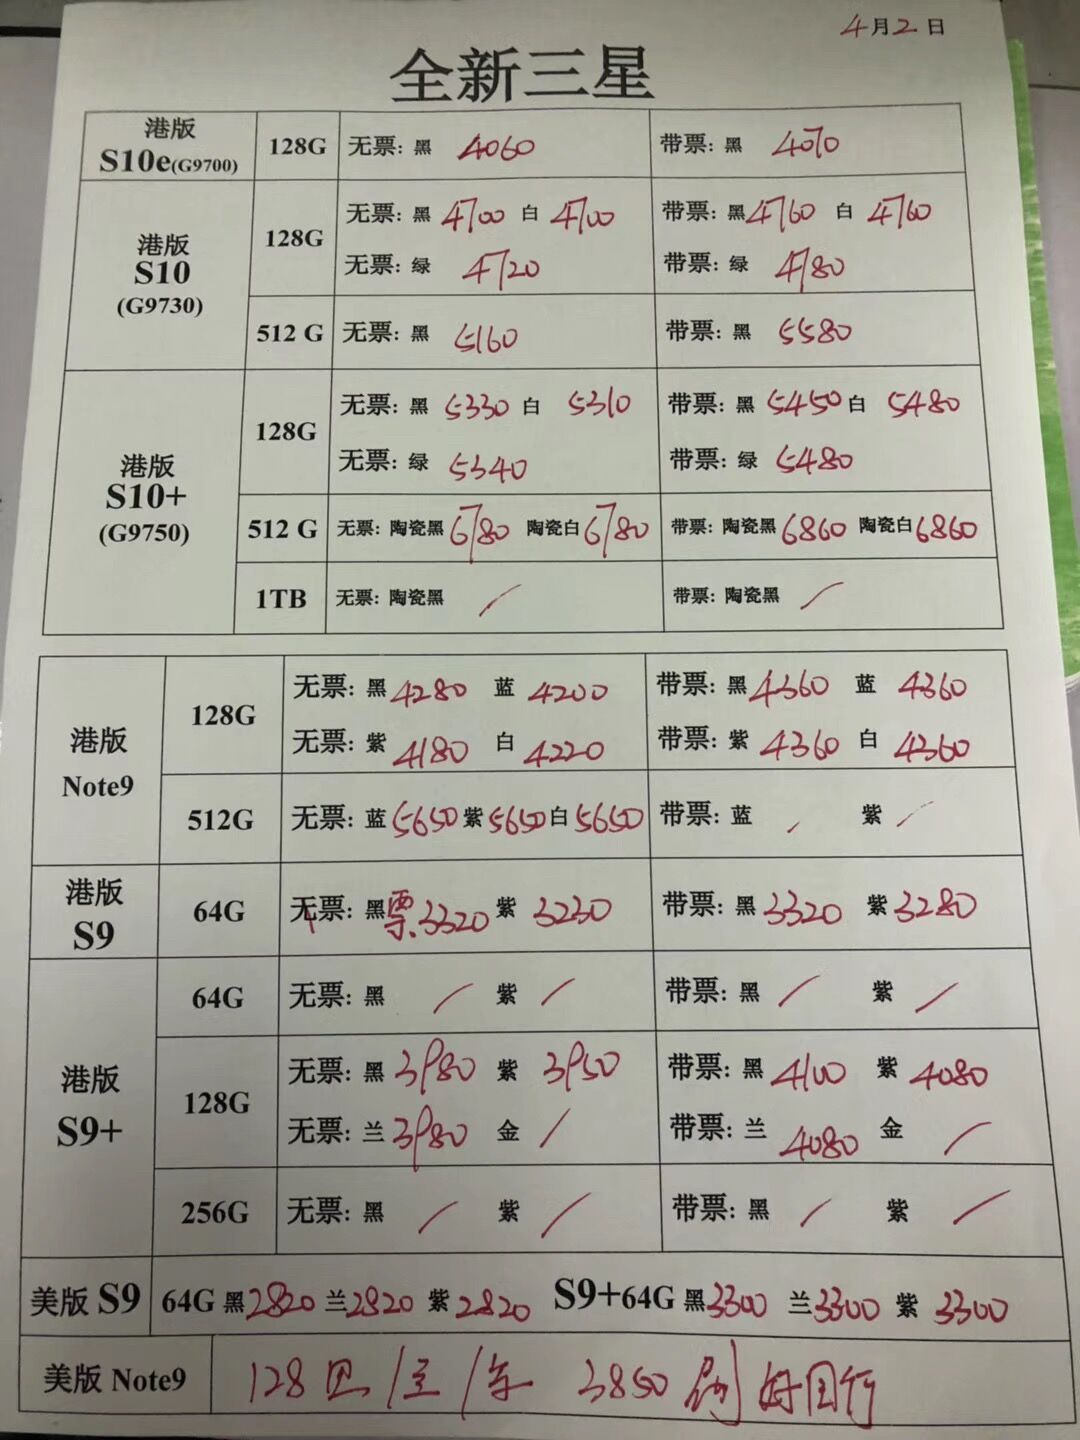 4月2日
全新三星
港版 S10e(G9700) 128G 无票: 黑 4060 带票: 黑 4070
港版 S10 (G9730) 128G 无票: 黑 4700 白 4700 带票: 黑 4760 白 4760
无票: 绿 4720 带票: 绿 4780
512 G 无票: 黑 5160 带票: 黑 5580
港版 S10+ (G9750) 128G 无票: 黑 5330 白 5310 带票: 黑 5450 白 5480
无票: 绿 5340 带票: 绿 5480
512 G 无票: 陶瓷黑 6780 陶瓷白 6780 带票: 陶瓷黑 6860 陶瓷白 6860
1TB 无票: 陶瓷黑 / 带票: 陶瓷黑 /
港版 Note9 128G 无票: 黑 4280 蓝 4200 带票: 黑 4360 蓝 4360
无票: 紫 4180 白 4220 带票: 紫 4360 白 4360
512G 无票: 蓝 5650 紫 5650 白 5650 带票: 蓝 / 紫 /
港版 S9 64G 无票: 黑 票.3320 紫 3230 带票: 黑 3320 紫 3280
港版 S9+ 64G 无票: 黑 / 紫 / 带票: 黑 / 紫 /
128G 无票: 黑 3980 紫 3950 带票: 黑 4100 紫 4080
无票: 兰 3980 金 / 带票: 兰 4080 金 /
256G 无票: 黑 / 紫 / 带票: 黑 / 紫 /
美版 S9 64G 黑 2820 兰 2820 紫 2820 S9+64G 黑 3300 兰 3300 紫 3300
美版 Note9 128 3850 刷好国行